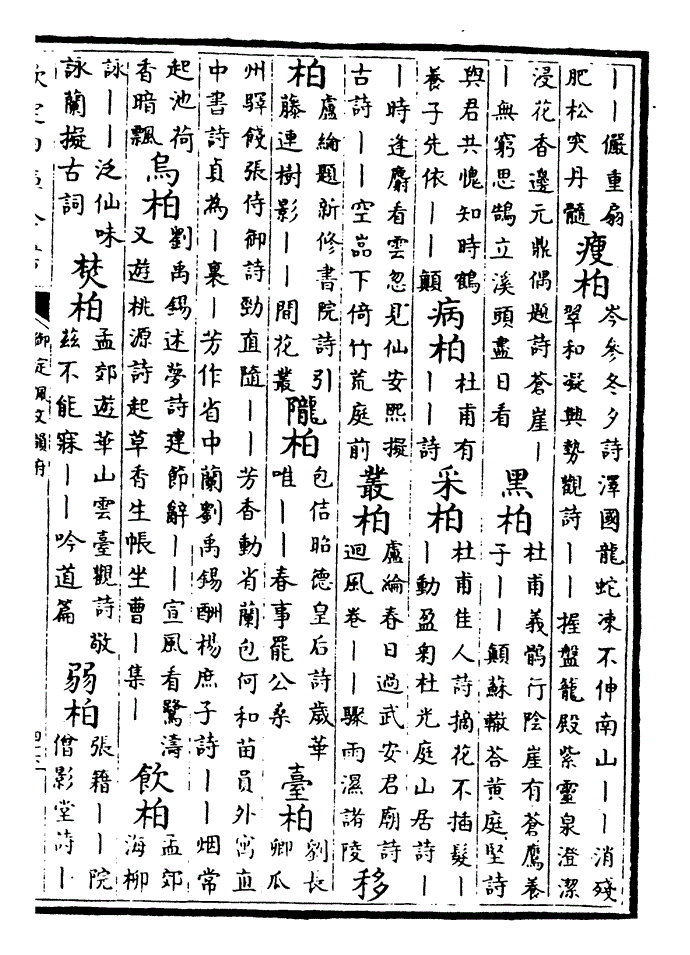 ｜｜儼重扃
肥松突丹髓
瘦柏
岑參冬夕詩渾國龍蛇凍不伸南山｜｜消殘
翠和凝興勢觀詩｜｜握盤龍殿紫靈泉澄潔
浸花香邊元鼎偶題詩蒼崖｜
｜無窮思鵠立溪頭盡日看
黑柏
杜甫義鶻行陰崖有蒼鷹養
子｜｜顛蘇轍荅黄庭堅詩
與君共愧知時鶴
養子先依｜｜顛
病柏
杜甫有
｜｜詩
采柏
杜甫佳人詩摘花不插髮｜
｜動盈匊杜光庭山居詩｜
｜時逢麝看雲忽見仙安熙擬
古詩｜｜空嵓下倚竹荒庭前
叢柏
盧綸春日過武安君廟詩
迴風卷｜｜驟雨濕諸陵
移
柏
盧綸題新修書院詩引
藤連樹影｜｜間花叢
隴柏
包佶昭德皇后詩歲華
唯｜｜春事罷公桑
臺柏
劉長
卿瓜
州驛餞張侍御詩勁直隨｜｜芳香動省蘭包何和苗員外寓直
中書詩貞為｜裏｜芳作省中蘭劉禹錫酬楊庶子詩｜｜烟常
起池荷
香暗飄
烏柏
劉禹錫述夢詩建節辭｜｜宣風看鷺濤
又遊桃源詩起草香生帳坐曹｜集｜
飲柏
孟郊
海柳
詠｜｜泛仙味
詠蘭擬古詞
焚柏
孟郊遊華山雲臺觀詩敬
茲不能寐｜｜吟道篇
弱柏
張籍｜｜院
僧影堂詩｜
御定佩文韻府